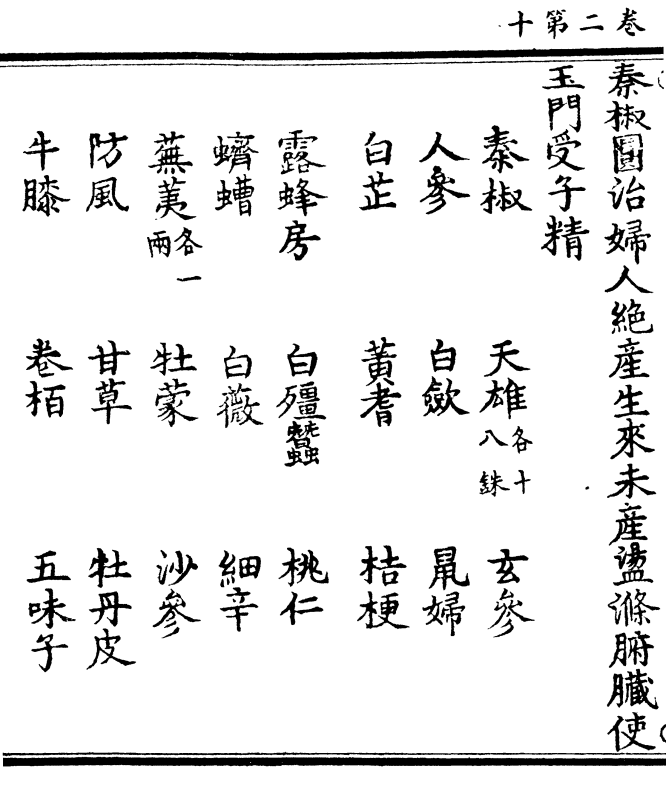 卷二第十
秦椒圓治婦人絕產生來未產盪滌腑臟使
玉門受子精
秦椒 天雄各十八銖 玄參
人參 白歛 鼠婦
白芷 黃耆 桔梗
露蜂房 白殭蠶 桃仁
蠐螬 白薇 細辛
蕪荑各一兩 牡蒙 沙參
防風 甘草 牡丹皮
牛膝 卷栢 五味子